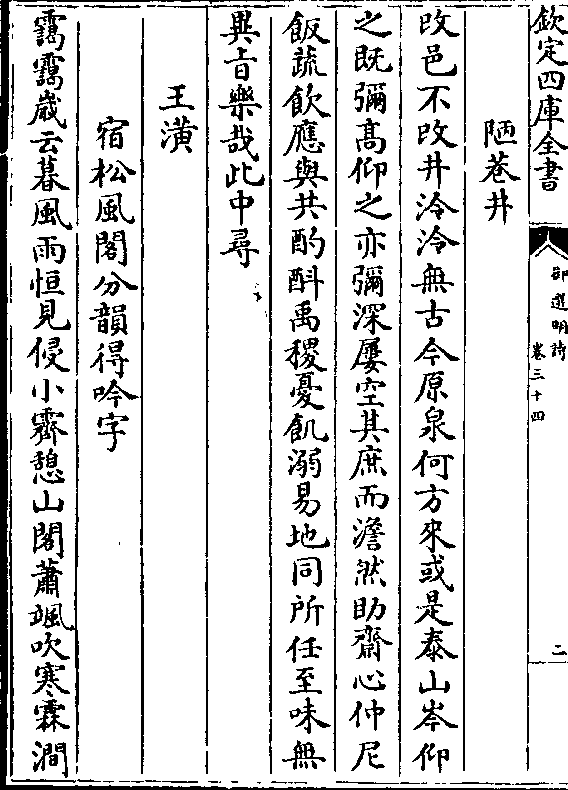 欽定四庫全書
御選明詩
卷三十四
二
陋巷井
改邑不改井泠泠無古今原泉何方來或是泰山岑仰
之既彌高仰之亦彌深屢空其庶而澹然助齋心仲尼
飯蔬飲應與共酌斟禹稷憂飢溺易地同所任至味無
異旨樂哉此中尋
王潢
宿松風閣分韻得吟字
靄靄歲云暮風雨恒見侵小霽憩山閣蕭颯吹寒霖澗